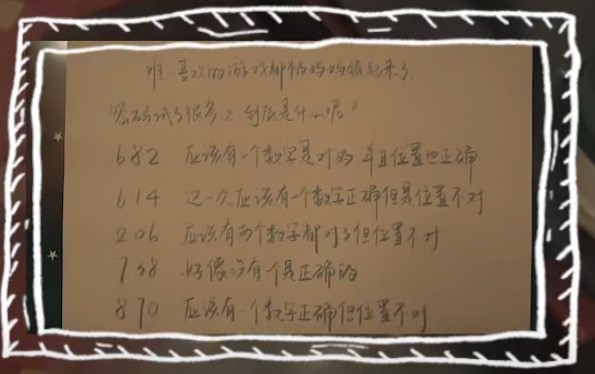 唯一喜欢的游戏都被妈妈锁起来了,
密码试了很多次 到底是什么呢?
682 应该有一个数字是对的 并且位置也正确
614 这一次应该有一个数字正确但是位置不对
206 应该有两个数字都对了但位置不对
738 好像没有个是正确的
870 应该有一个数字正确但位置不对